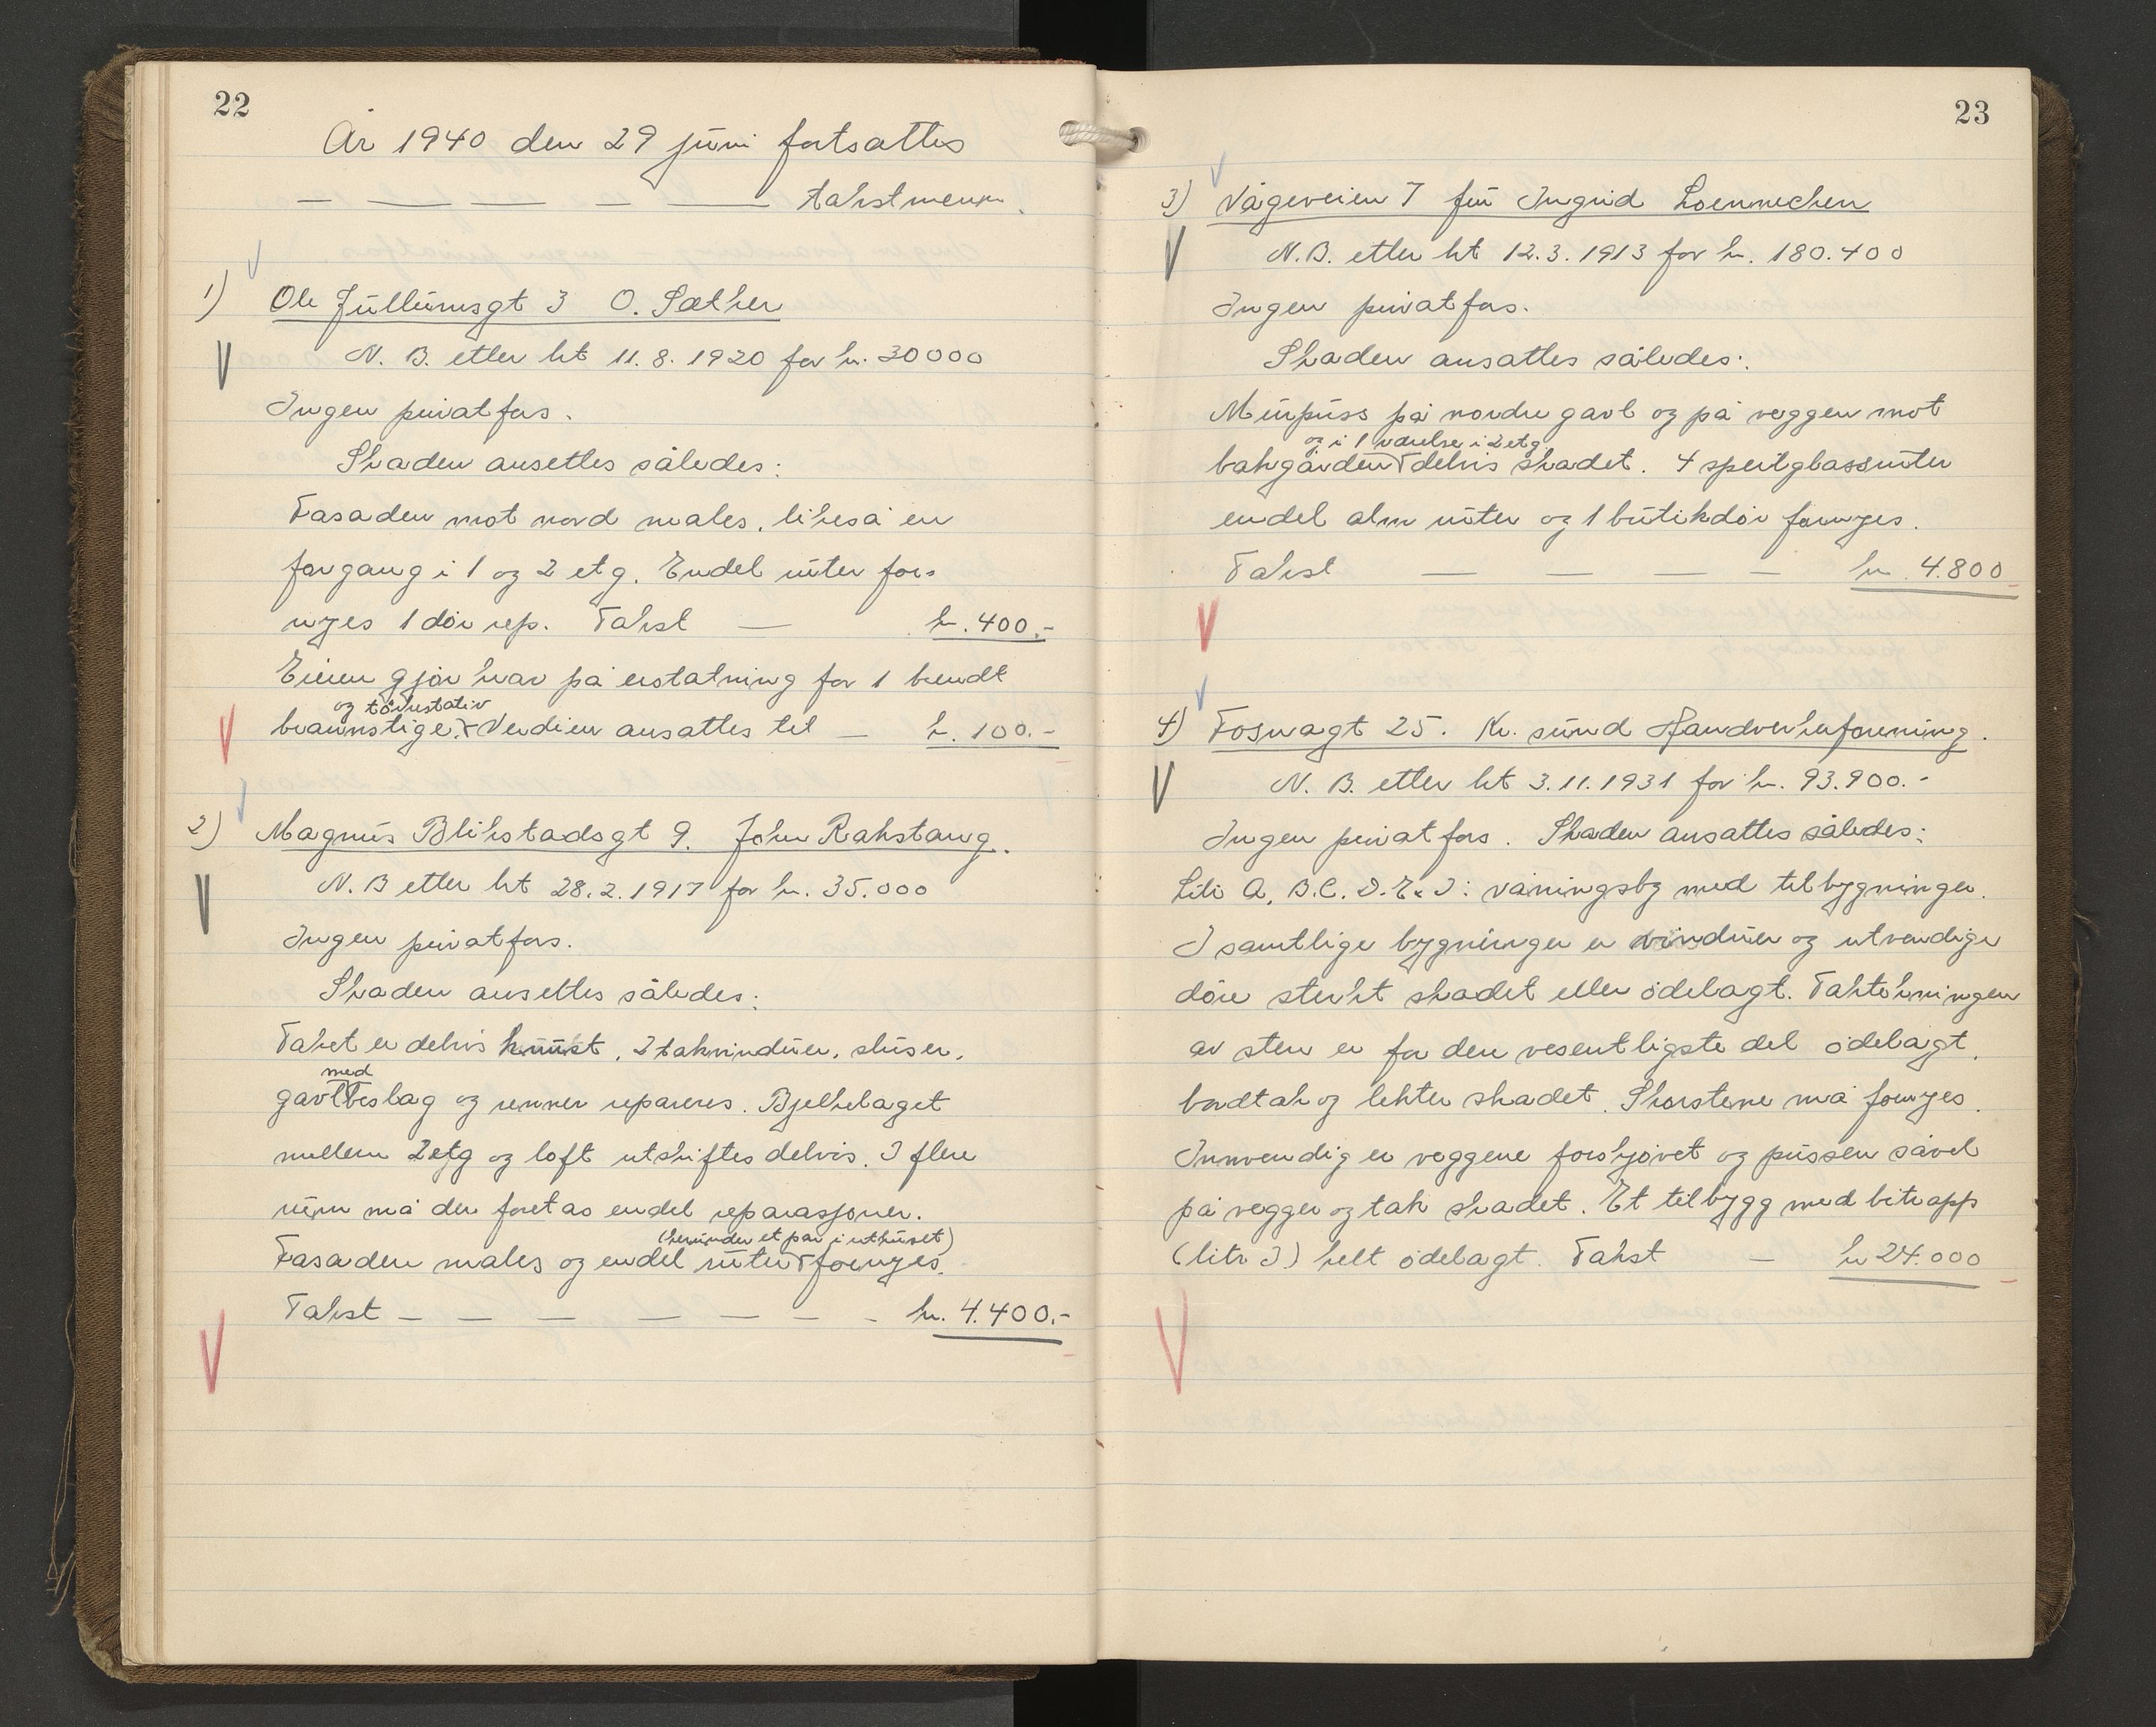 22
År 1940 den 29 juni fortsattes
— — — — — takstmenn.
1) Ole Jullumsgt 3 O. Sæther
N. B. etter kt 11.8.1920 for kr. 30000
Ingen privatfors.
Skaden ansettes således:
Fasaden mot nord males, likeså en
forgang i 1 og 2 etg. Endel ruter for-
nyes 1 dör rep. Takst — kr. 400.-
Eieren gjör krav på erstatning for 1 brendt
og törkestativ
brannstige. Verdien ansattes til — kr. 100.-
2) Magnus Blikstadsgt 9. John Rakstang.
N. B etter kt 28.2.1917 for kr. 35.000
Ingen privatfors.
Skaden ansettes således:
Taket er delvis knust, 2 takvinduer, sluser,
med
gavlbeslag og renner repareres. Bjelkelaget
mellem 2 etg og loft utskiftes delvis. I flere
rum må der foretas endel reparasjoner.
(herunder et par i uthuset)
Fasaden males og endel ruter fornyes.
Takst — — — — — — - kr. 4.400.-
23
3) Vågeveien 7 fru Ingrid Loennechen
N.B. etter kt 12.3.1913 for kr. 180.400
Ingen privatfors.
Skaden ansattes således:
Murpuss på nordre gavl og på veggen mot
og i 1 værelse i 2 etg
bakgården delvis skadet. 4 speilglassruter
endel alm ruter og 1 butikdör fornyes.
Takst — — — — kr 4.800
4) Fosnagt 25. Kr. sund Handverkerforening.
N. B. etter kt 3.11.1931 for kr. 93.900.-
Ingen privatfors. Skaden ansattes således:
Litr A, B.C. D. E. J: våningsby med tilbygninger.
I samtlige bygninger er vinduer og utvendige
döre sterkt skadet eller ödelagt. Taktekningen
av sten er for den vesentligste del ödelagt,
bordtak og lekter skadet. Skorstene må fornyes.
Innvendig er veggene forskjövet og pussen såvel
på vegger og tak skadet. Et tilbygg med bitrapp
(litr J) helt ödelagt. Takst — kr 24.000